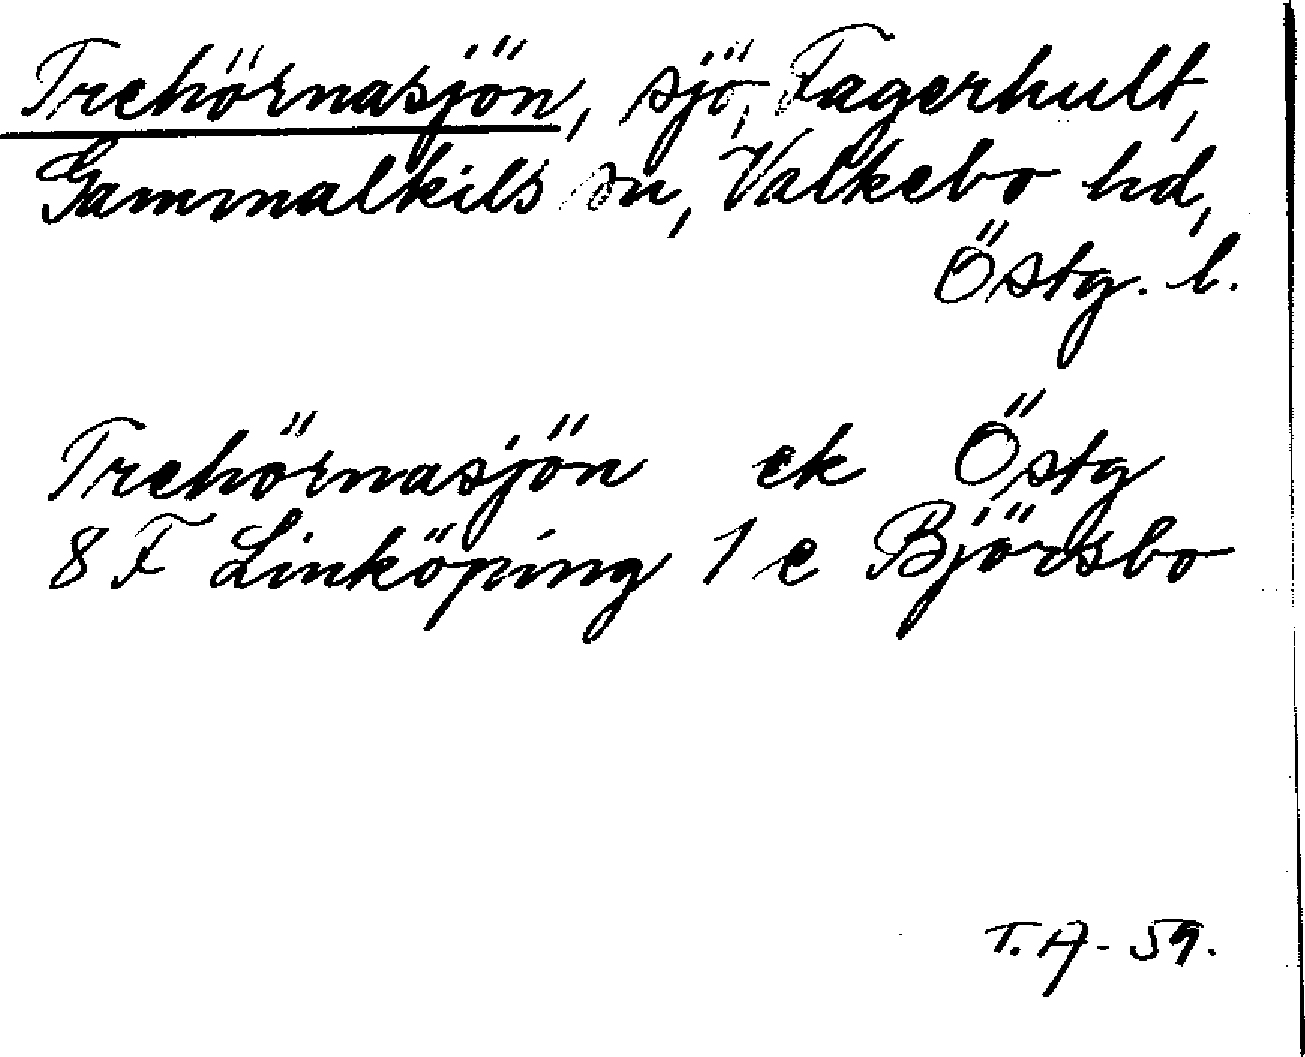 Trehörnasjön, sjö, Fagerhult,
Gammalkils sn, Valkebo hd,
Östg. l.
Trehörnasjön ek Östg
8 F Linköping 1 e Björsbo
T. A - 59.